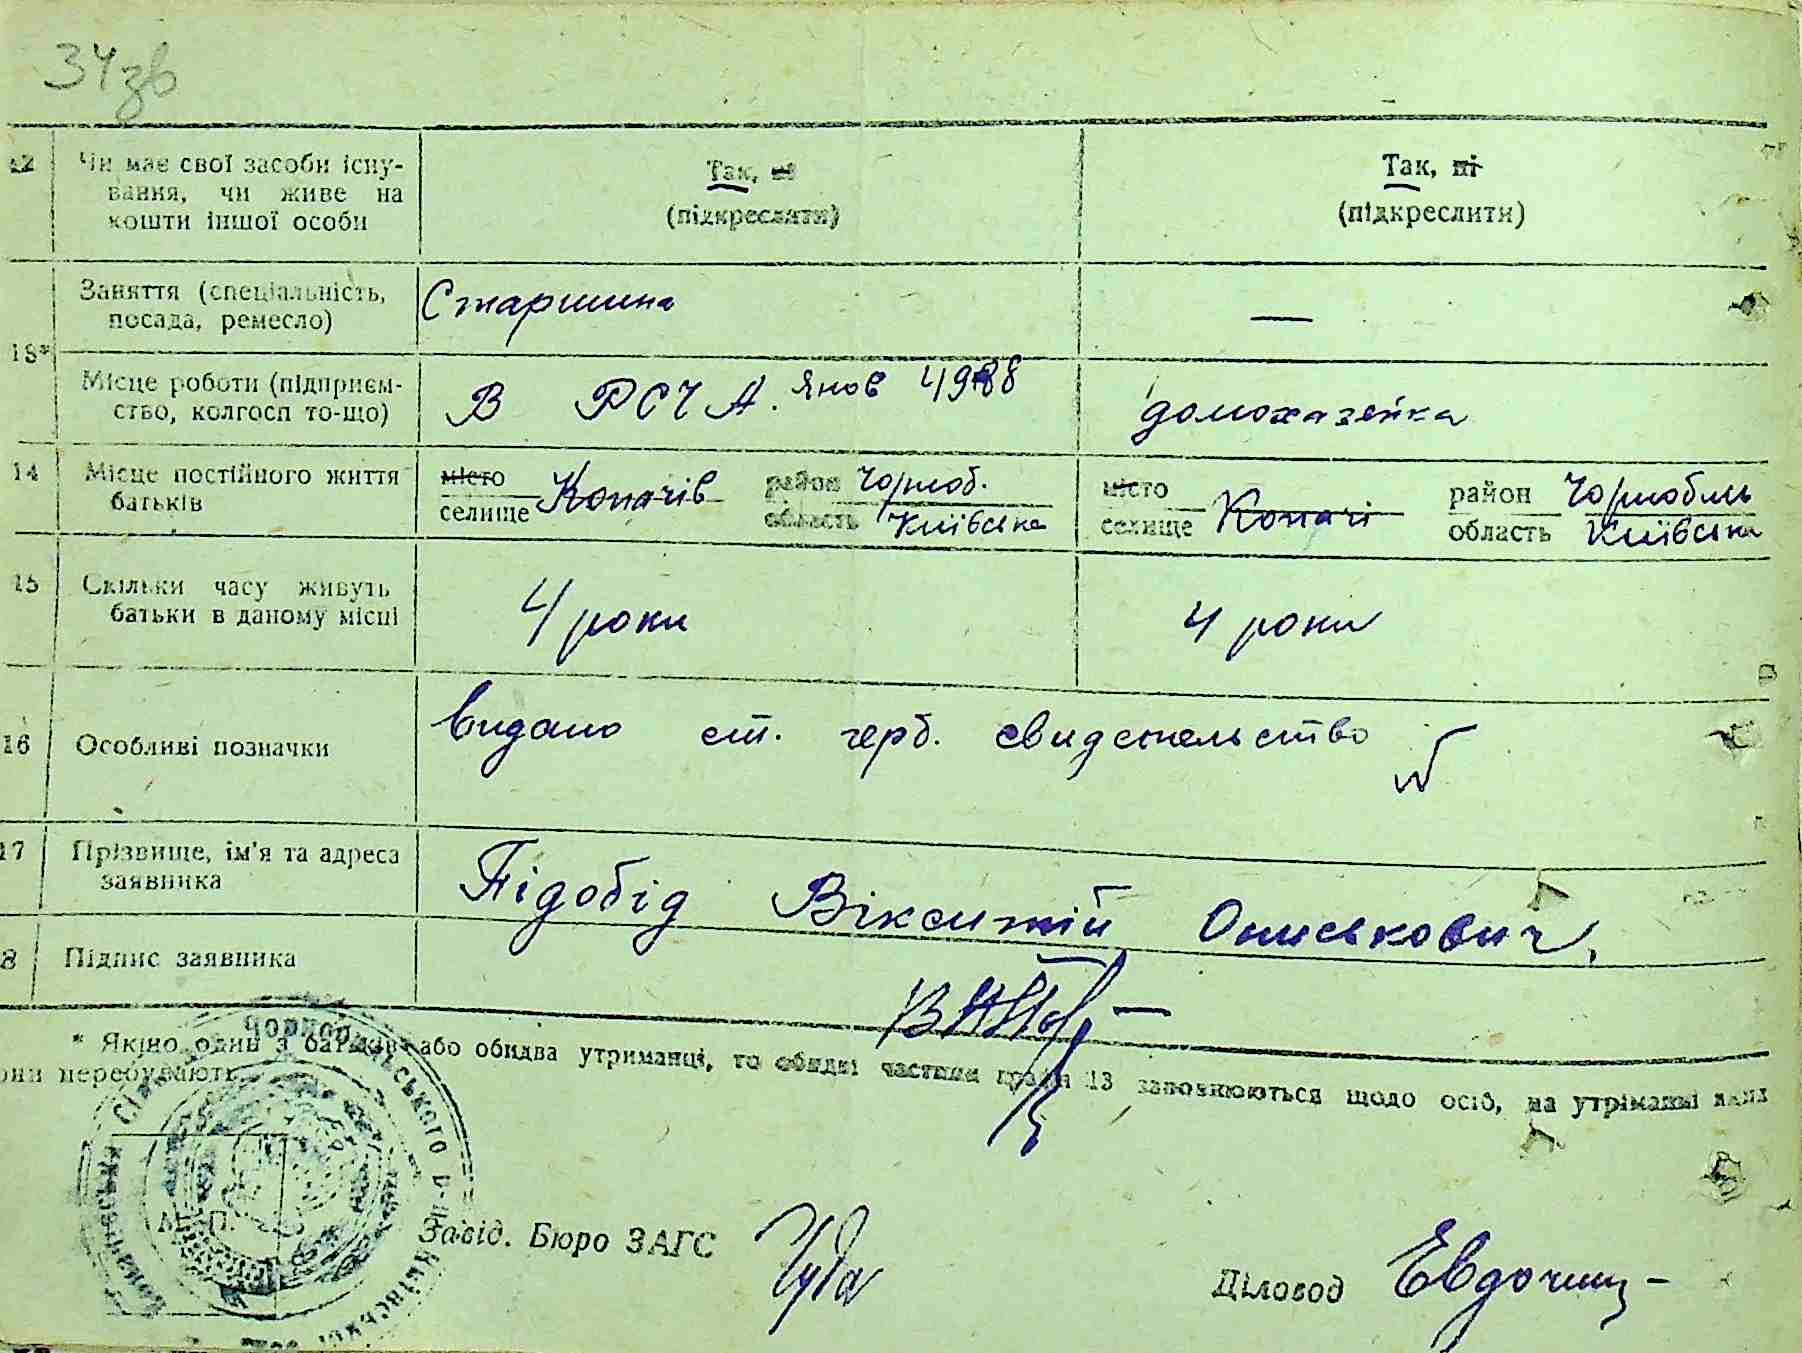 34зв
12 Чи має свої засоби існу-
вання, чи живе на
кошти іншої особи
Так, ні
(підкреслити)
Так, ні
(підкреслити)
13*
Заняття (спеціальність,
посада, ремесло)
Старшина
—
Місце роботи (підприєм-
ство, колгосп то-що)
В РСЧА. Янов
домохазяйка
14 Місце постійного життя
батьків
місто
селище Копачів
район Чорноб.
область Київська
місто
селище Копачі
район Чорнобиль
область Київська
15 Скільки часу живуть
батьки в даному місці
4 роки
4 роки
16 Особливі позначки
видано ст. герб. свидетельство
17 Прізвище, ім'я та адреса
заявника
Підобід Вікентій Ониськович,
8 Підпис заявника
* Якщо один з батьків або обидва утриманці, то обидві частини графи 13 заповнюються щодо осіб, на утриманні яких
они перебувають.
Чорнобильського р-ну Київської
М. П.
Завід. Бюро ЗАГС
Діловод